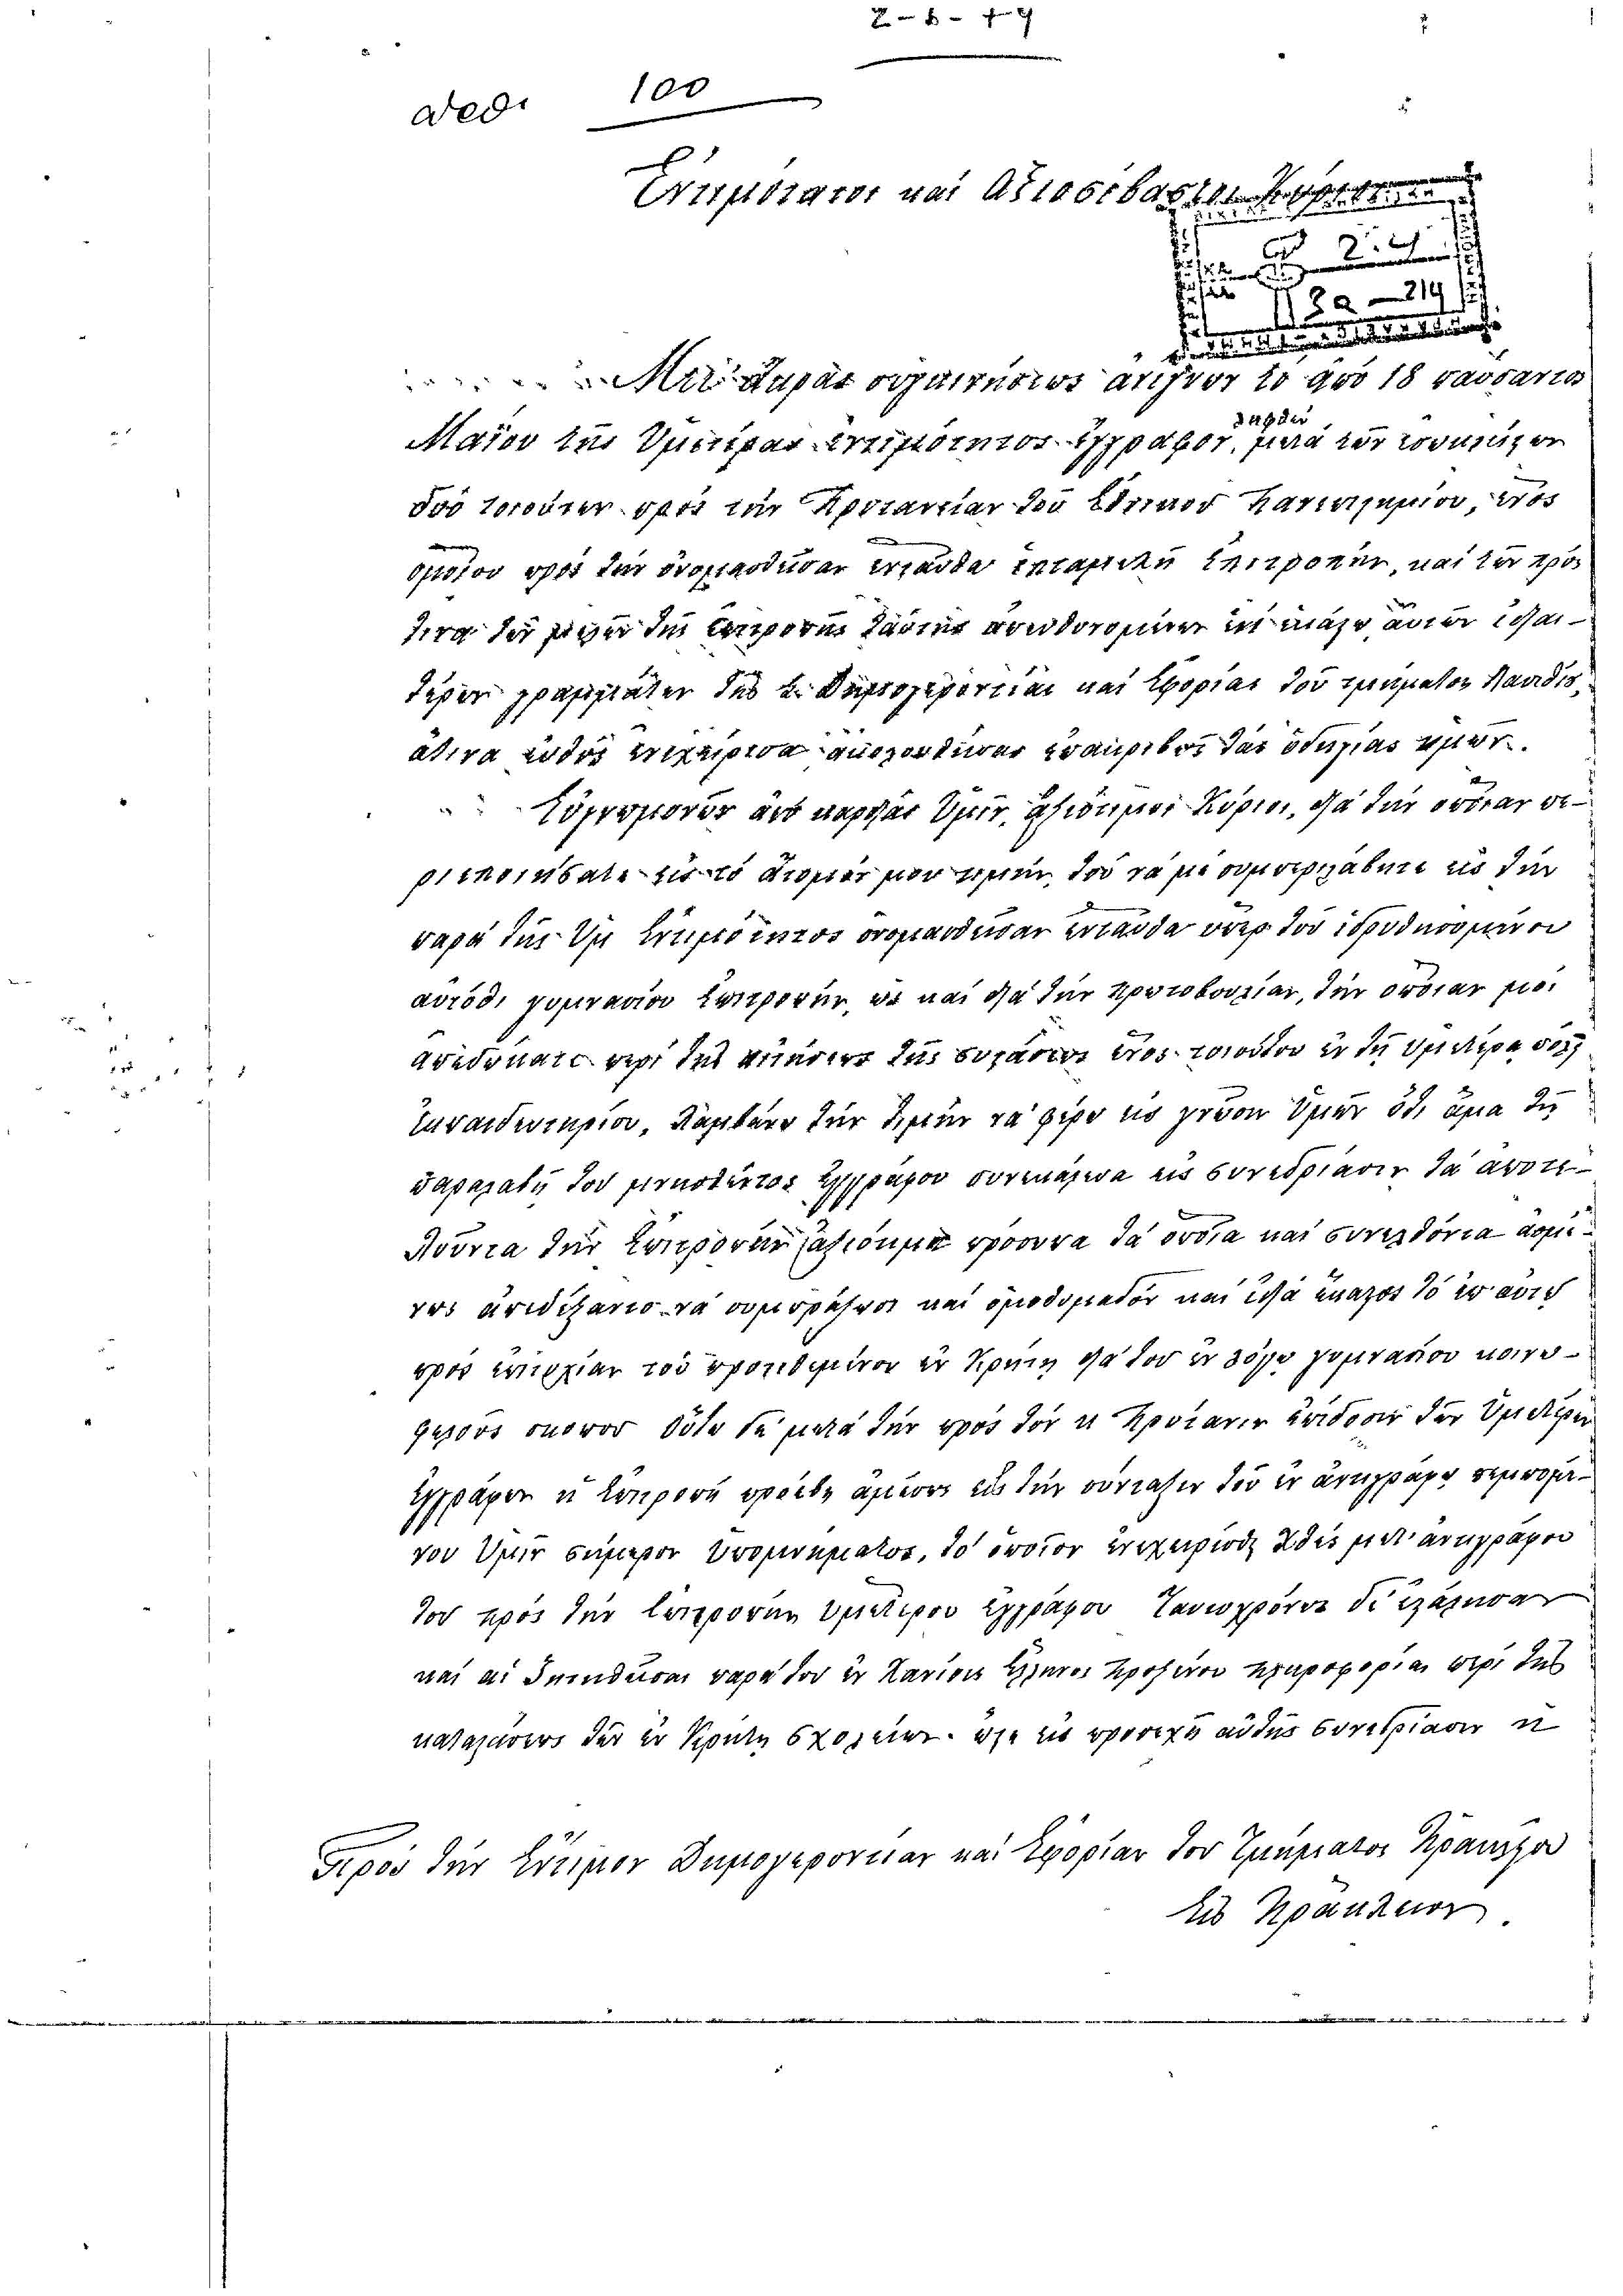 2-6-79
αριθ. 100
Ἐντιμότατοι καὶ Ἀξιοσέβαστοι Κύριοι
2.4
3α-214
Μετ' ἄκρας συγκινήσεως ἀνέγνων τὸ ἀπὸ 18 παύσαντος
Μαΐου τῆς Ὑμετέρας ἐντιμότητος ἔγγραφον, ληφθὲν μετὰ τῶν ἐσωκλείστων
δύο τοιούτων πρὸς τὴν Πρυτανείαν τοῦ Ἐθνικοῦ Πανεπιστημίου, ἑνὸς
ὁμοίου πρὸς τὴν ὀνομασθεῖσαν ἐνταῦθα ἑπταμελῆ Ἐπιτροπήν, καὶ τῶν πρός
τινα τῶν μελῶν τῆς ἐπιτροπῆς ταύτης ἀπευθυνομένων ἑνὶ ἑκάστῳ αὐτῶν ἰδιαι-
τέρων γραμμάτων τῆς Σ. Δημογεροντίας καὶ Ἐφορίας τοῦ τμήματος
ἅτινα εὐθὺς ἐνεχείρισα ἀκολουθήσας ἐπακριβῶς τὰς ὁδηγίας ὑμῶν.
Εὐγνωμονῶν ἀπὸ καρδίας Ὑμῖν, ἀξιότιμοι Κύριοι, διὰ τὴν ὁποίαν πε-
ριεποιήσατε εἰς τὸ ἄτομόν μου τιμήν, τοῦ νὰ μὲ συμπεριλάβητε εἰς τὴν
παρὰ τῆς Ὑμ. Ἐντιμότητος ὀνομασθεῖσαν ἐνταῦθα ὑπὲρ τοῦ ἱδρυθησομένου
αὐτόθι γυμνασίου Ἐπιτροπήν, ὡς καὶ διὰ τὴν πρωτοβουλίαν, τὴν ὁποίαν μοὶ
ἀπεδώκατε περὶ τῆς κινήσεως τῆς συστάσεως ἑνὸς τοιούτου ἐν τῇ ὑμετέρᾳ πόλει
ἐκπαιδευτηρίου, λαμβάνω τὴν τιμὴν νὰ φέρω εἰς γνῶσιν Ὑμῶν ὅτι ἅμα τῇ
παραλαβῇ τοῦ μνησθέντος ἐγγράφου συνεκάλεσα εἰς συνεδρίασιν τὰ ἀποτε-
λοῦντα τὴν Ἐπιτροπὴν ἀξιότιμα πρόσωπα τὰ ὁποῖα καὶ συνελθόντα ἀσμέ-
νως ἀπεδέξαντο νὰ συμπράξωσι καὶ ὁμοθυμαδὸν καὶ ἰδίᾳ ἕκαστος τὸ ἐπ' αὐτῷ
πρὸς ἐπιτυχίαν τοῦ προτιθεμένου ἐν Κρήτῃ διὰ τοῦ ἐν λόγῳ γυμνασίου κοινω-
φελοῦς σκοποῦ Οὕτω δὲ μετὰ τὴν πρὸς τὸν κ. Πρύτανιν ἐπίδοσιν τῶν Ὑμετέρων
ἐγγράφων ἡ Ἐπιτροπὴ προέβη ἀμέσως εἰς τὴν σύνταξιν τοῦ ἐν ἀντιγράφῳ πεμπομέ-
νου Ὑμῖν σήμερον Ὑπομνήματος, τὸ ὁποῖον ἐνεχειρίσθη χθὲς μετ' ἀντιγράφου
τοῦ πρὸς τὴν Ἐπιτροπὴν ὑμετέρου ἐγγράφου Ταυτοχρόνως δὲ ἐστάλησαν
καὶ αἱ ζητηθεῖσαι παρὰ τοῦ ἐν Χανίοις Ἕλληνος Προξένου πληροφορίαι περὶ τῆς
καταστάσεως τῶν ἐν Κρήτῃ σχολείων. ὥστε εἰς προσεχῆ αὐτῆς συνεδρίασιν ἡ
Πρὸς τὴν Ἔντιμον Δημογεροντίαν καὶ Ἐφορίαν τοῦ Τμήματος Ἡρακλείου
Εἰς Ἡράκλειον.